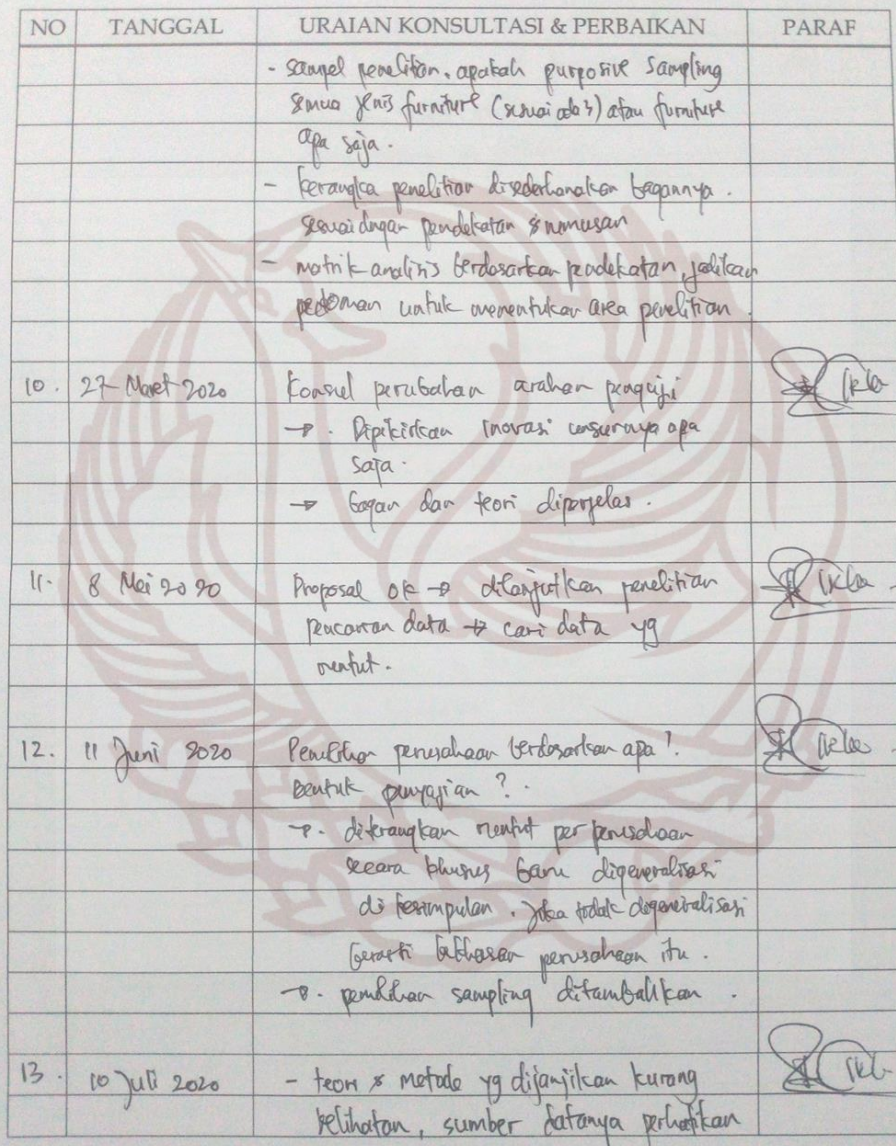 NO TANGGAL URAIAN KONSULTASI & PERBAIKAN PARAF
- sampel penelitian, apakah purposive sampling
semua jenis furniture (sesuai ada 3) atau furniture
apa saja.
- kerangka penelitian disederhanakan bagannya.
sesuai dengan pendekatan & rumusan
- matrik analisis berdasarkan pendekatan, jadikan
pedoman untuk menentukan area penelitian.
10. 27 Maret 2020 Konsul perubahan arahan penguji
→ . Dipikirkan inovasi unsurnya apa
saja.
→ bagan dan teori diperjelas.
11. 8 Mei 2020 Proposal ok → dilanjutkan penelitian
pencarian data → cari data yg
runtut.
12. 11 Juni 2020 Pemilihan perusahaan berdasarkan apa?
Bentuk penyajian?
→. diterangkan runtut per perusahaan
secara khusus baru digeneralisasi
di kesimpulan. Jika tidak digeneralisasi
berarti kekhasan perusahaan itu.
→. pemilihan sampling ditambahkan.
13. 10 Juli 2020 - teori & metode yg dijanjikan kurang
kelihatan, sumber datanya perhatikan